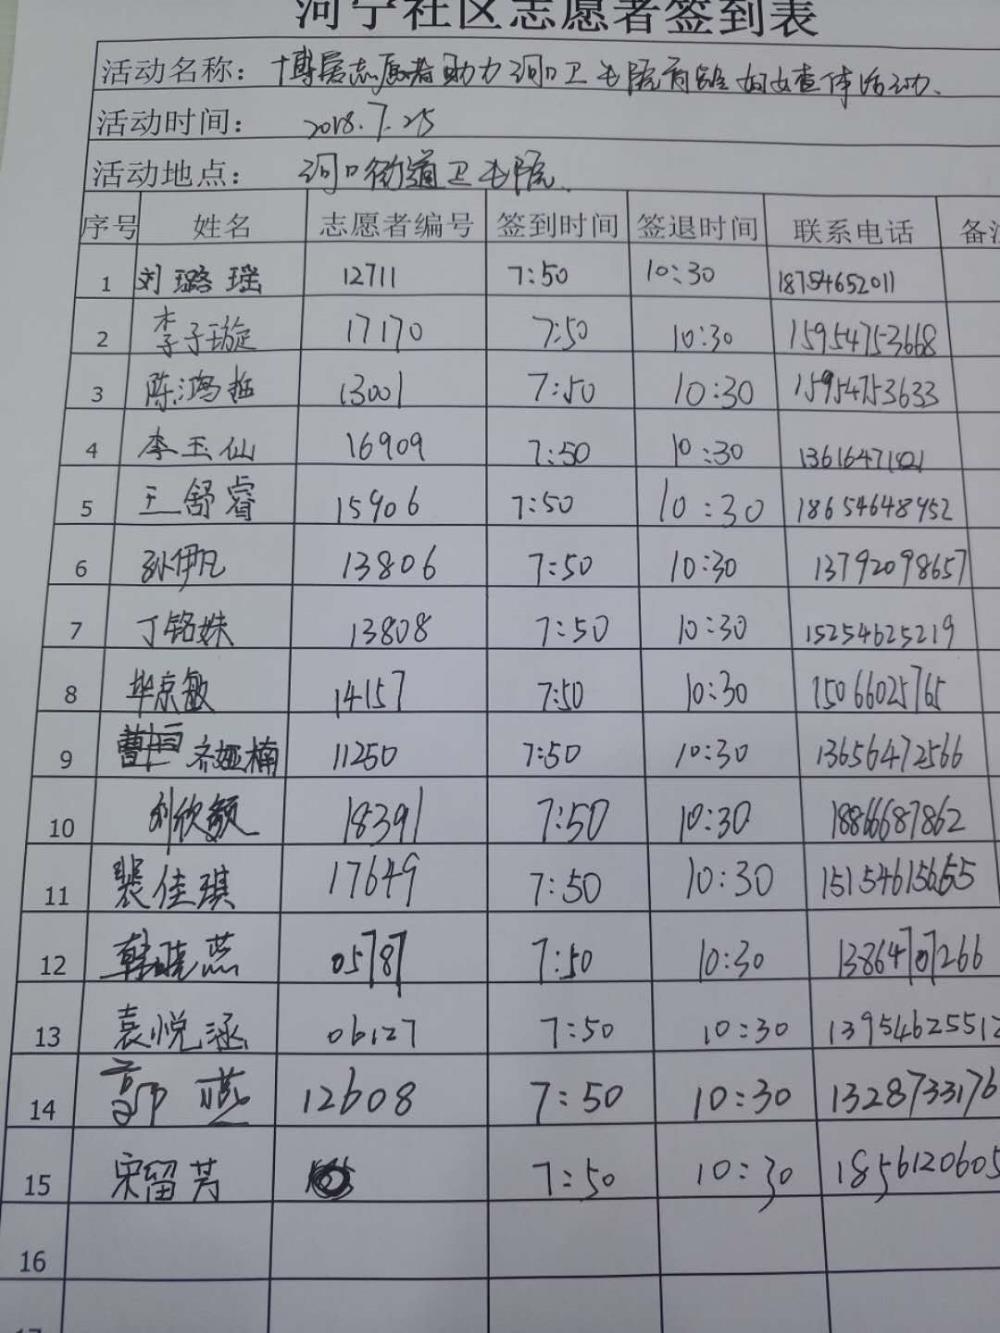 河宁社区志愿者签到表
活动名称: 博爱志愿者助力河口卫生院育龄妇女查体活动.
活动时间: 2018.7.25
活动地点: 河口街道卫生院.
序号 姓名 志愿者编号 签到时间 签退时间 联系电话 备注
1 刘璐瑶 12711 7:50 10:30 18754652011
2 李子璇 17170 7:50 10:30 15954753668
3 陈鸿 13001 7:50 10:30 15954753633
4 李玉仙 16909 7:50 10:30
5 王舒睿 15906 7:50 10:30 18654648952
6 孙伊凡 13806 7:50 10:30 13792098657
7 丁铭姝 13808 7:50 10:30 15254625219
8 毕京敏 14157 7:50 10:30 15066025765
9 齐娅楠 11250 7:50 10:30 13656472566
10 刘欣颖 18391 7:50 10:30 18866687862
11 裴佳琪 17649 7:50 10:30 15154615655
12 韩晓燕 05787 7:50 10:30 13864707266
13 袁悦涵 06127 7:50 10:30 13954625512
14 郭燕 12608 7:50 10:30 1328733176
15 宋留芳 7:50 10:30 1856120605
16
17